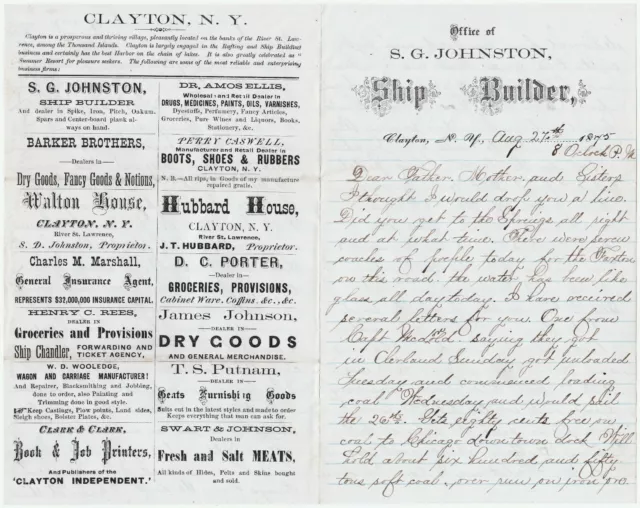 CLAYTON, N. Y.
Clayton is a prosperous and thriving village, pleasantly located on the banks of the River St. Law-
rence, among the Thousand Islands. Clayton is largely engaged in the Rafting and Ship Building
business and certainly has the best Harbor on the chain of lakes. It is also greatly celebrated as
Summer Resort for pleasure seekers. The following are some of the most reliable and enterprising
business firms:
S. G. JOHNSTON,
SHIP BUILDER
And dealer in Spikes, Iron, Pitch, Oakum.
Spars and Center-board plank al-
ways on hand.
BARKER BROTHERS,
—Dealers in—
Dry Goods, Fancy Goods & Notions,
Walton House,
CLAYTON, N. Y.
River St. Lawrence,
S. D. Johnston, Proprietor.
Charles M. Marshall,
General Insurance Agent,
REPRESENTS $32,000,000 INSURANCE CAPITAL.
HENRY C. REES,
DEALER IN
Groceries and Provisions
Ship Chandler, FORWARDING AND
TICKET AGENCY,
W. D. WOOLEDGE,
WAGON AND CARRIAGE MANUFACTURER!
And Repairer, Blacksmithing and Jobbing,
done to order, also Painting and
Trimming done in good style.
Keep Castings, Plow points, Land sides,
Sleigh shoes, Bolster Plates, &c.
CLARK & CLARK,
Book & Job Printers,
And Publishers of the
'CLAYTON INDEPENDENT.'
DR. AMOS ELLIS,
Wholesale and Retail Dealer in
DRUGS, MEDICINES, PAINTS, OILS, VARNISHES,
Dyestuffs, Perfumery, Fancy Articles,
Groceries, Pure Wines and Liquors, Books,
Stationery, &c.
PERRY CASWELL,
Manufacturer and Retail Dealer in
BOOTS, SHOES & RUBBERS
CLAYTON, N. Y.
N. B.—All rips, in Goods of my manufacture
repaired gratis.
Hubbard House,
CLAYTON, N. Y.
River St. Lawrence,
J. T. HUBBARD, Proprietor.
D. C. PORTER,
—Dealer in—
GROCERIES, PROVISIONS,
Cabinet Ware, Coffins, &c., &c.
James Johnson,
—DEALER IN—
DRY GOODS
AND GENERAL MERCHANDISE.
T. S. Putnam,
—DEALER IN—
Gents Furnishing Goods
Suits cut in the latest styles and made to order
Keeps everything that man can ask for.
SWART & JOHNSON,
Dealers in
Fresh and Salt MEATS,
All kinds of Hides, Pelts and Skins bought
and sold.
Office of
S. G. JOHNSTON,
Ship Builder,
Clayton, N. Y., Aug 27th 1875
8 Oclock P. M
Dear Father Mother and Sisters
I thought I would drop you a line.
Did you get to the all right
and at what time. There were seven
coaches of people today for the
on this road. the water has been like
glass all day today. I have received
several letters for you. One from
Capt saying they got
in Cleveland Sunday got unloaded
Tuesday and commenced loading
coal Wednesday and would sail
the 26th. Gets eighty cents free on
coal to Chicago downtown dock Will
hold about six hundred and fifty
tons soft coal. over run on iron ore